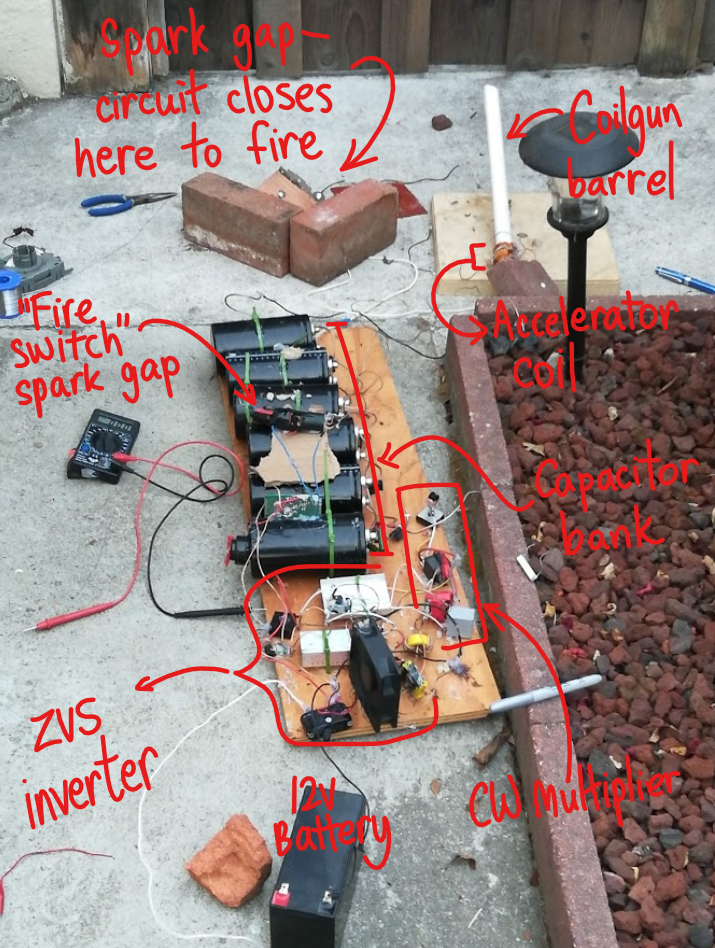 Spark gap —
circuit closes
here to fire
Coilgun
barrel
"Fire
switch"
spark gap
Accelerator
coil
Capacitor
bank
ZVS
inverter
12V
Battery
CW Multiplier